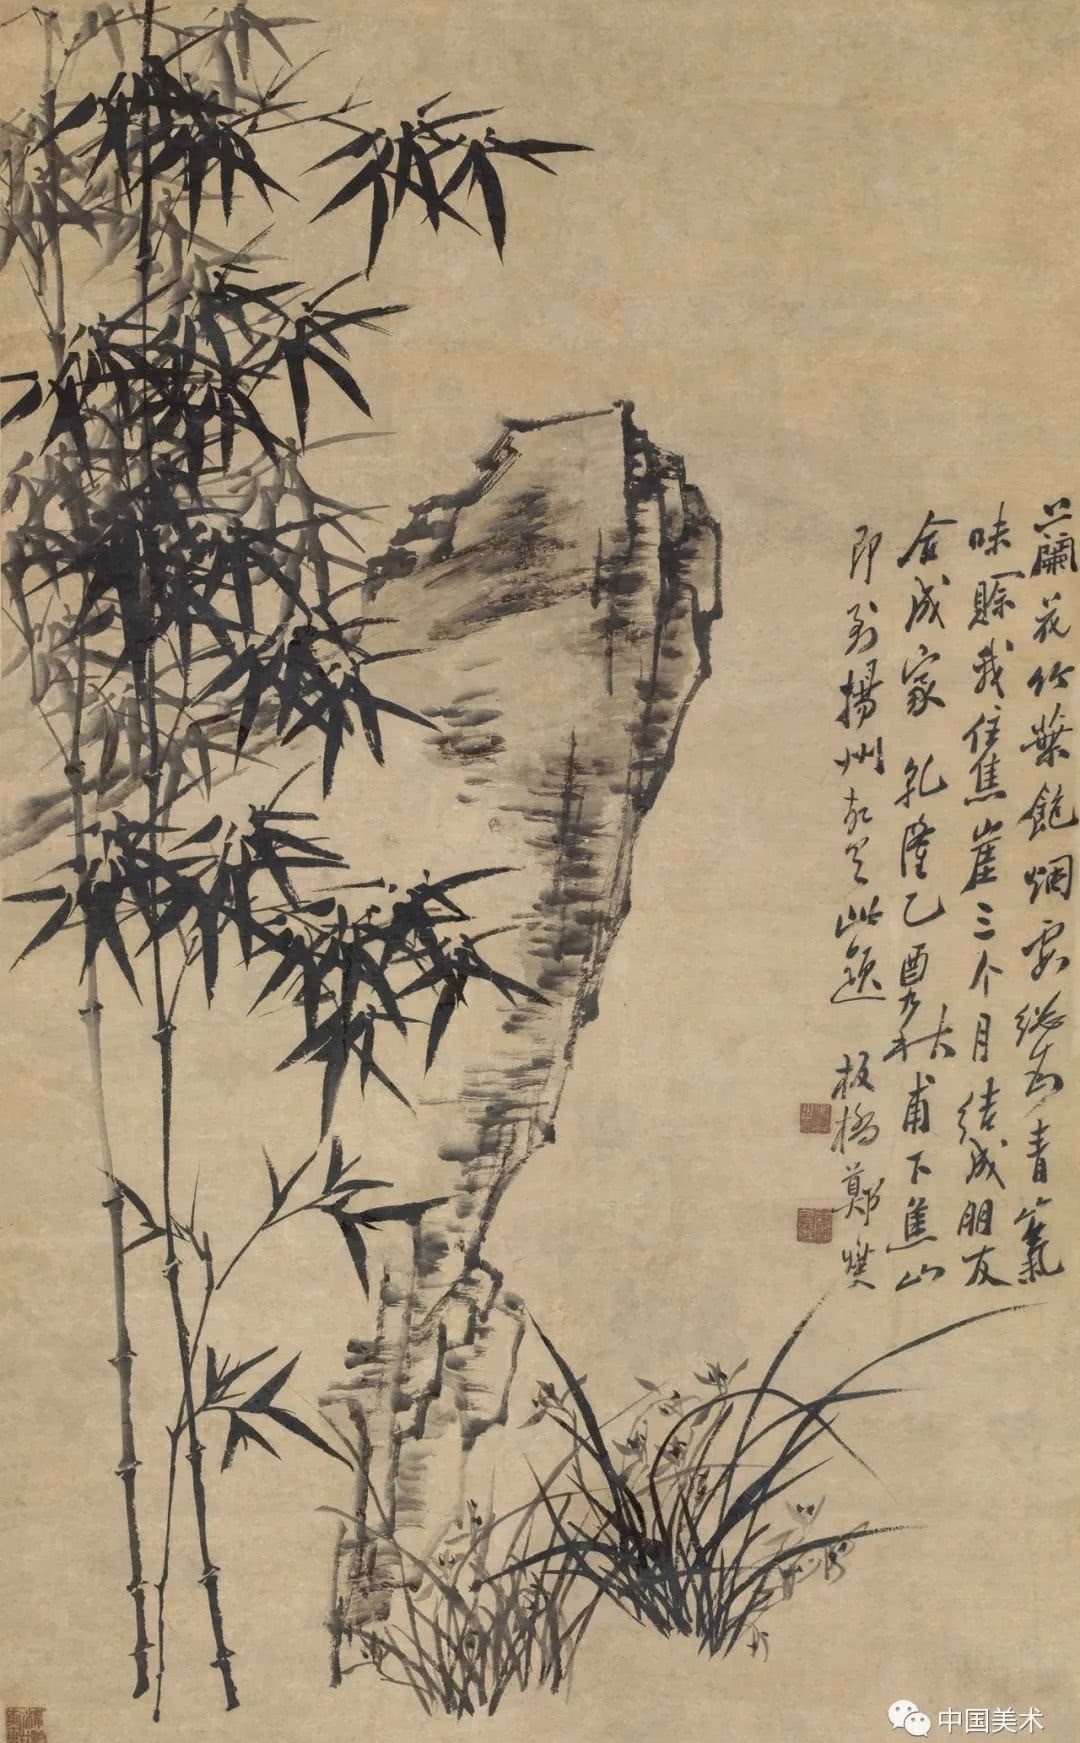 蘭花竹葉飽烟總為青氣
味賒我住焦崖三个月結成朋友
合成家 乾隆乙酉秋甫下焦山
即到揚州此題 板橋鄭燮
中国美术